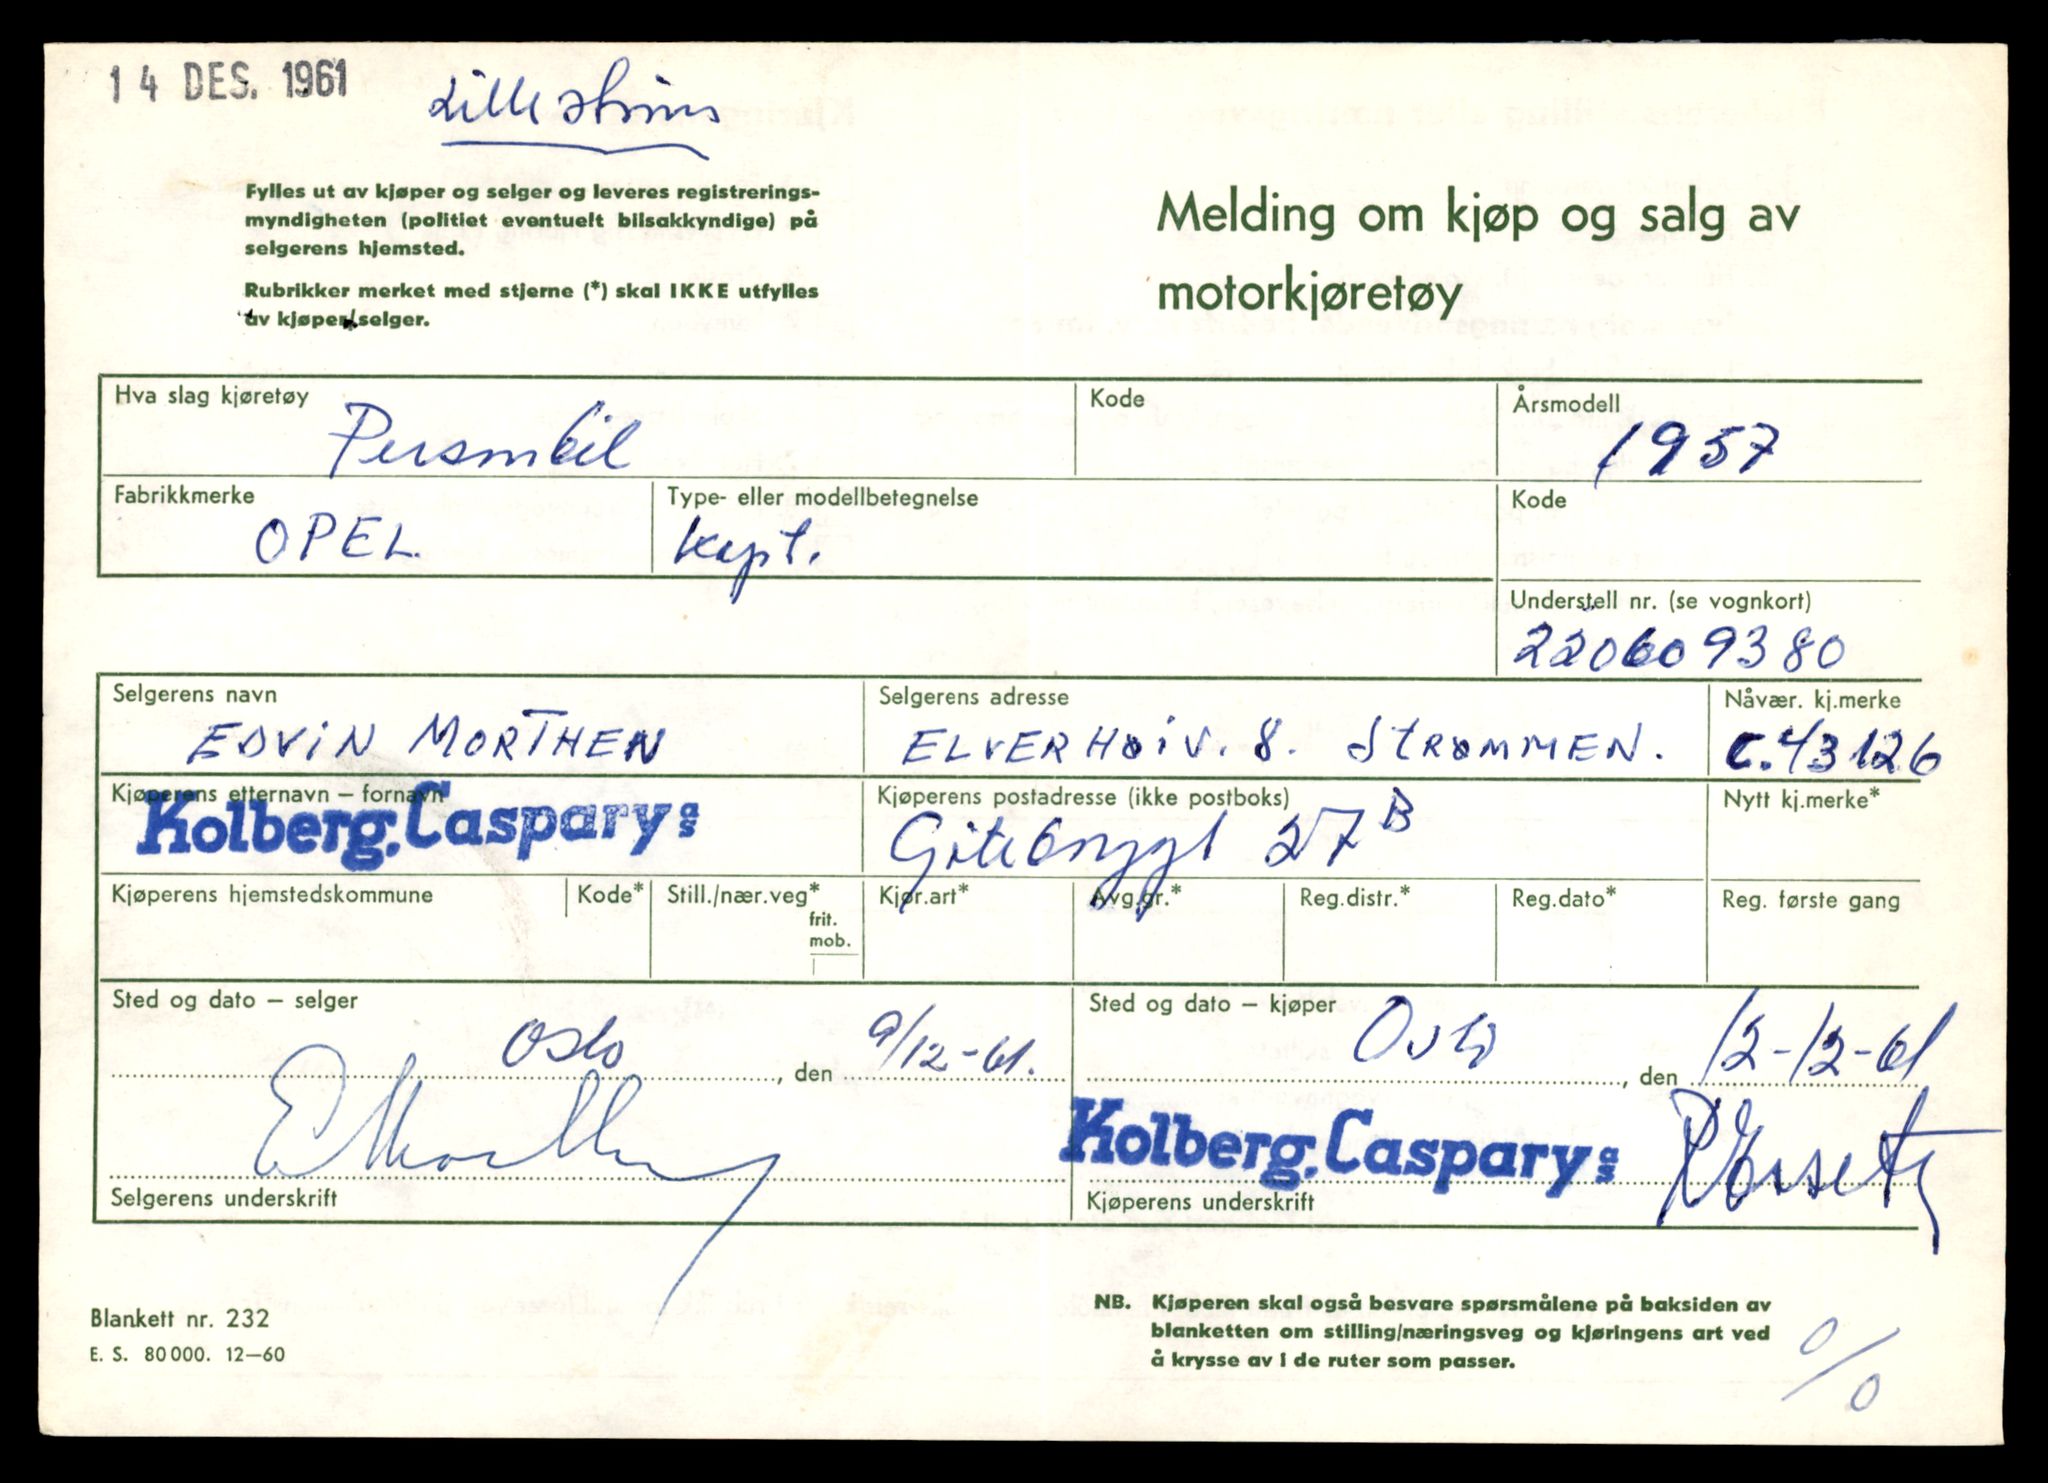 14 DES. 1961
Lillestrøm
Fylles ut av kjøper og selger og leveres registrerings-
myndigheten (politiet eventuelt bilsakkyndige) på
selgerens hjemsted.
Rubrikker merket med stjerne (*) skal IKKE utfylles
av kjøper/selger.
Melding om kjøp og salg av
motorkjøretøy
Hva slag kjøretøy
Personbil
Kode
Årsmodell
1957
Fabrikkmerke
OPEL
Type- eller modellbetegnelse
Kapt.
Kode
Understell nr. (se vognkort)
220609380
Selgerens navn
EDVIN MORTHEN
Selgerens adresse
ELVERHØIV. 8. STRØMMEN.
Nåvær. kj.merke
C.43126
Kjøperens etternavn – fornavn
Kolberg, Caspary a/s
Kjøperens postadresse (ikke postboks)
27 B
Nytt kj.merke*
Kjøperens hjemstedskommune
Kode*
Still./nær.veg*
frit.
mob.
Kjør.art*
Avg.gr.*
Reg.distr.*
Reg.dato*
Reg. første gang
Sted og dato – selger
Oslo, den 9/12-61.
Sted og dato – kjøper
Oslo, den 12-12-61
Selgerens underskrift
Kolberg, Caspary a/s
Kjøperens underskrift
Blankett nr. 232
E. S. 80 000. 12–60
NB. Kjøperen skal også besvare spørsmålene på baksiden av
blanketten om stilling/næringsveg og kjøringens art ved
å krysse av i de ruter som passer.
0/0